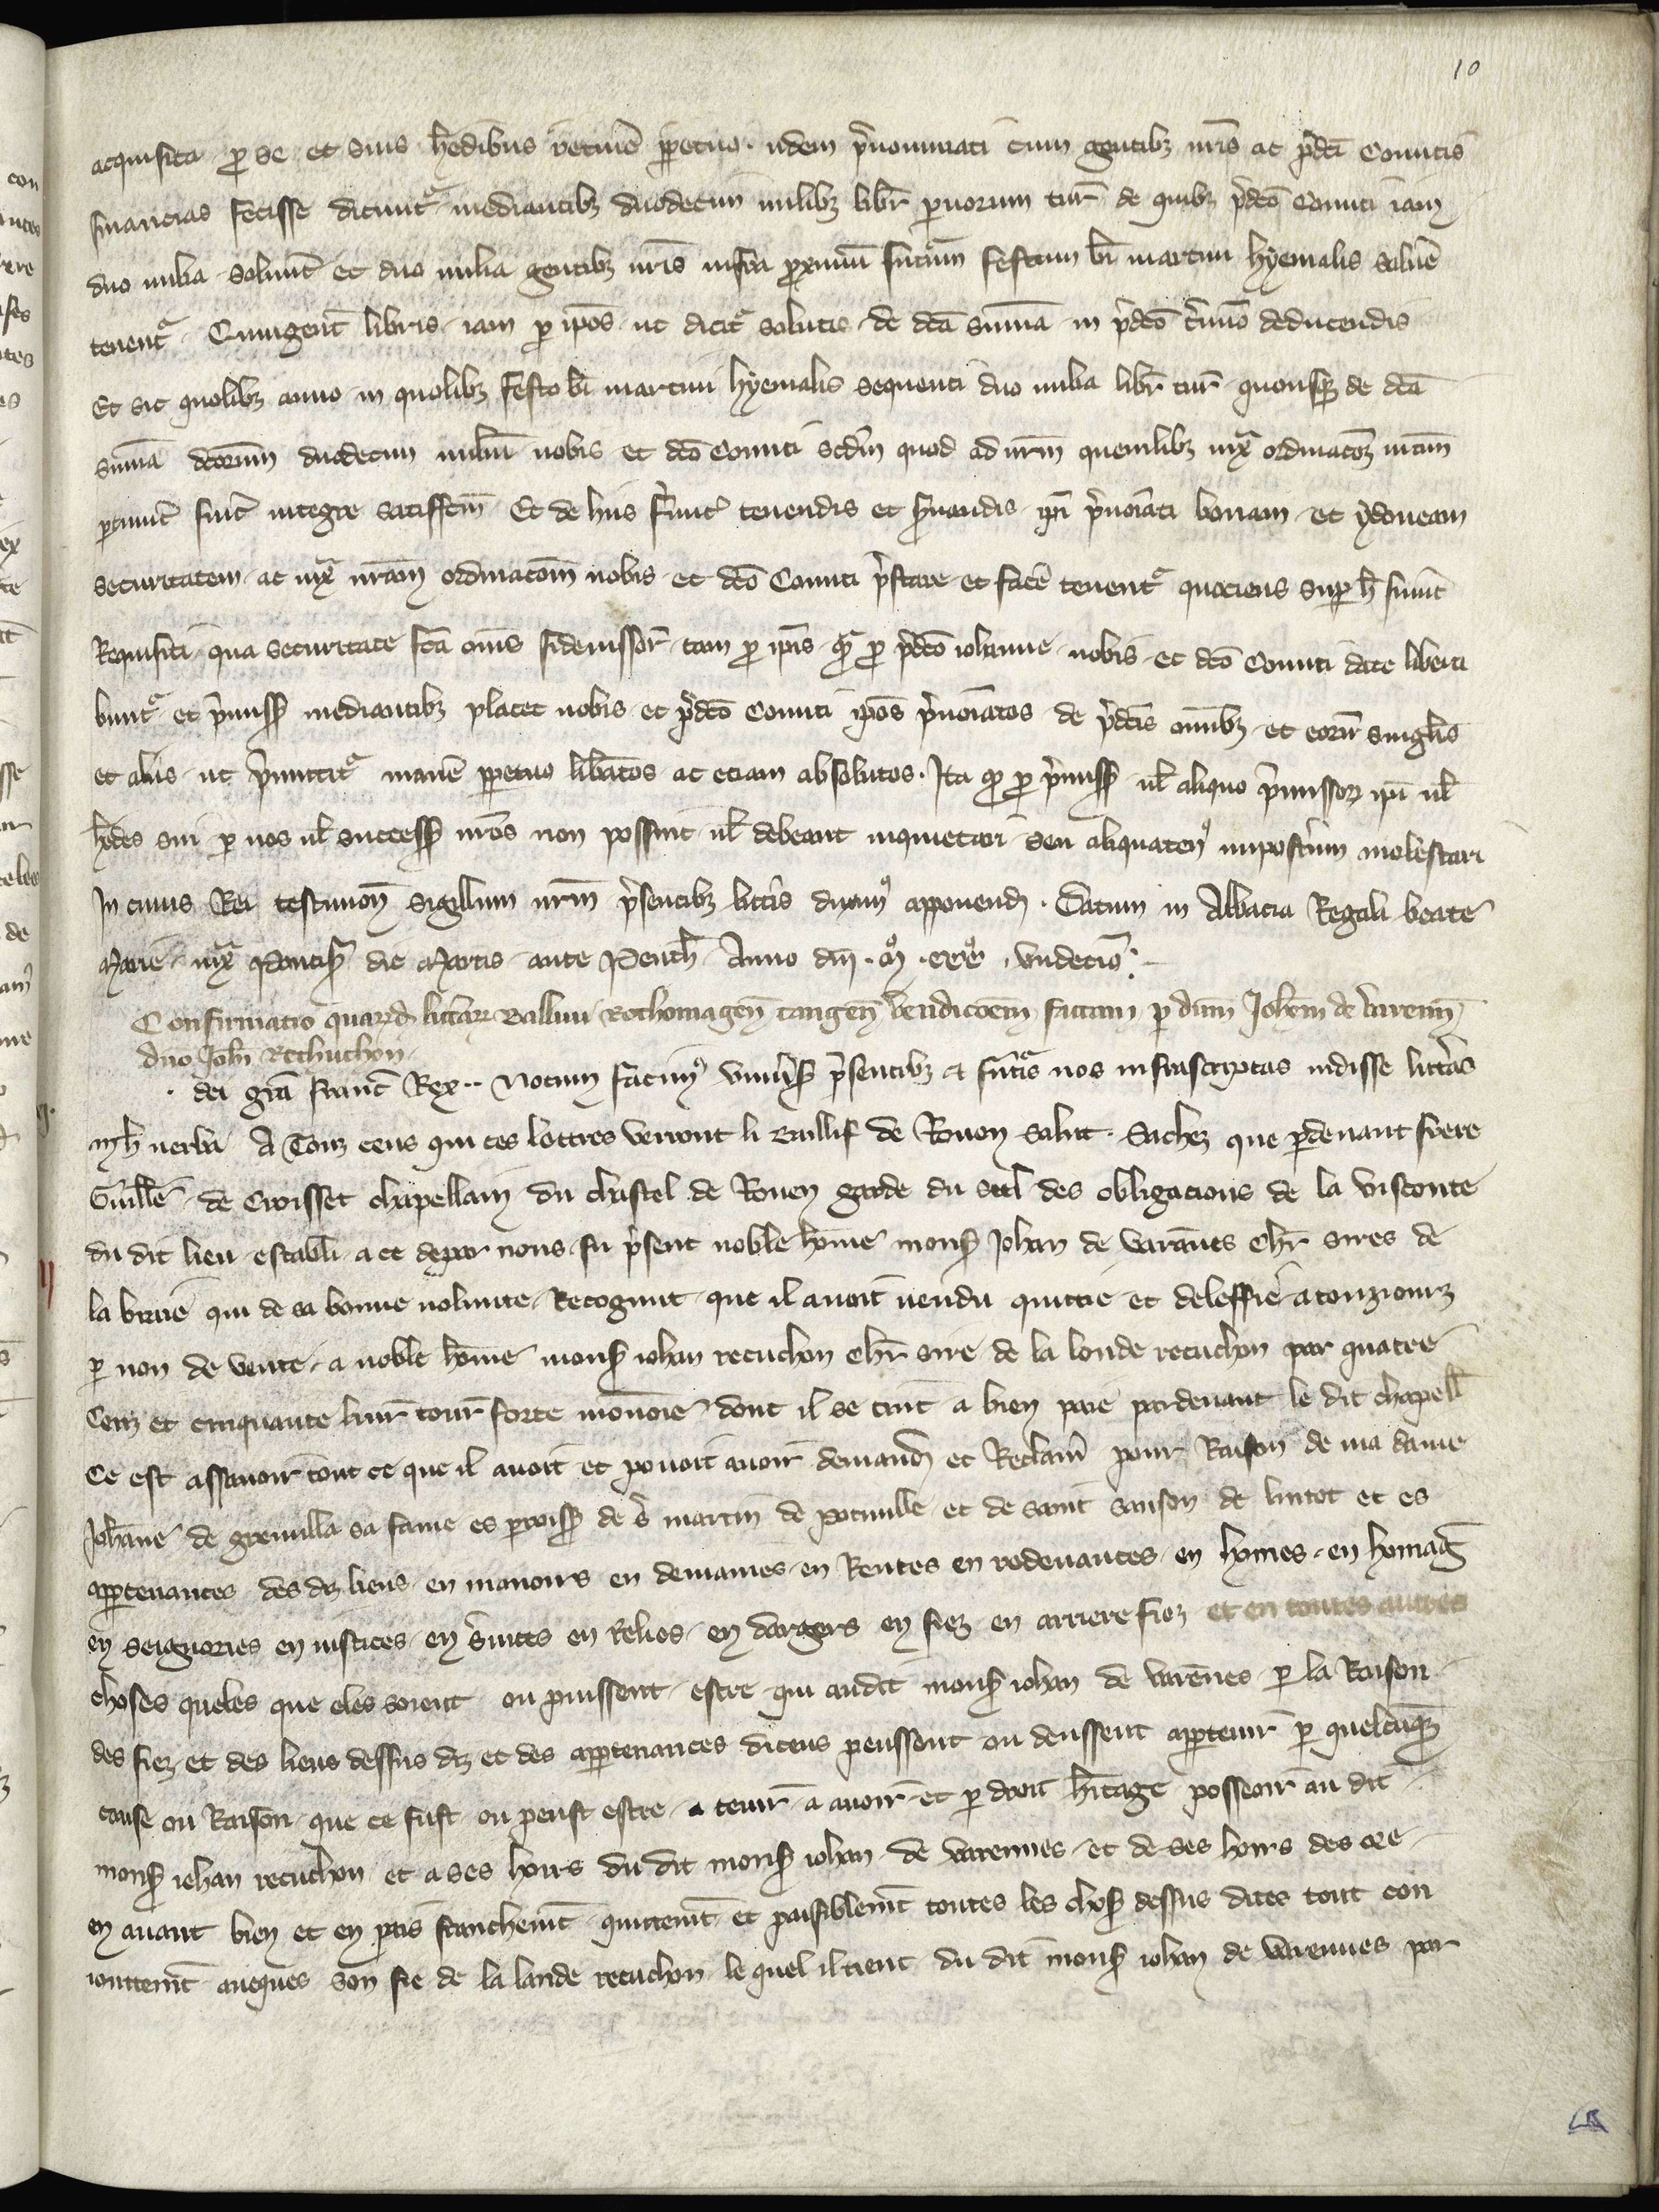 10
acquisita p se et suis hedibus retinē ppetuo. iidem p̄nominati cum gentibz nr̄is ac p̄dc̄i Comitis
financias fecisse dicunt᷑ mediantibz duodecim milibz libr̄ paruorum tur̄ de quibz p̄dc̄o Comiti iam
duo milia soluunt et duo milia gentibz nr̄is infra proximū futurū festum bī martini hyemalis soluē
tenent᷑. Quingent̄ libris iam p ip̄os ut dicit᷑ solutis de dc̄a summa in p̄dc̄o t̄mino deducendis
Et sic quolibz anno in quolibz festo bī martini hyemalis sequenti duo milia libr̄ tur̄ quousqz de dc̄a
summa dc̄orum duodecim miliū nobis et dc̄o Comiti scd̄m quod ad nr̄m quemlibz iux᷑ ordinac̄oz
ptinuit fuit integre satisfc̄m Et de hiis tenendis et s̄uandis ip̄i p̄noīati bonam et ydoneam
securitatem ac iux᷑ nr̄am ordinacōm nobis et dc̄o Comiti p̄stare et facē tenent᷑ quociens sup h̄ fuint
Requisiti qua securitate fc̄a om̄s fideiussor̄ tam p ip̄is q᷑ p p̄dc̄o iohanne nobis et dc̄o Comiti date libera
bunt᷑ et p̄miss̄ mediantibz placet nobis et p̄dc̄o Comiti ip̄os p̄noīatos de p̄dc̄is om̄ibz et eorū singlis
et aliis ut p̄mittit᷑ manē ppetuo lib̄atos ac etiam absolutos. Ita qd p p̄miss̄ ul̄ aliquo p̄missoꝝ ip̄i ul̄
h̄edes sui p nos ul̄ success̄ nr̄os non possint ul̄ debeant inquietari seu aliquaten᷒ impost̄um molestari
In cuius Rei testimoñ sigillum nr̄m p̄sentibz litt̄is duxim᷒ apponend̄. Datum in Abbacia Regali beate
Marie iux᷑ Pontis̄ die Martis ante Penth̄. Anno dn̄i. m̊. ccc̊. vndecīo.
Confirmatio quarūd̄ litt̄arꝝ Balliui Rothomageñ tangeñ vendicōem factam p dn̄m Joh̄em de Varenn̄
dn̄o Joh̄i Rechuchon.
dei grā franc̄ Rex.. Notum facim᷒ vniu̅s̄ p̄sentibz et fut̄is nos infrascriptas uidisse litt̄as
in h̄ uerba A Touz ceus qui ces lettres verront li Baillif de Rouen salut. Sachez que pdeuant frere
Guill̄e de Croisset chapellain du chastel de Rouen garde du seel des obligacions de la visconte
du dit lieu establi a ce depar nous fu p̄sent noble hōme mons̄ Johan de varānes chr̄ sires de
la briere qui de sa bonne uolunte Recognut que il auoit uendu quittie et delessie a touziourz
p non de vente a noble hōme mons̄ iohan recuchon chr̄ sire de la londe recuchon par quatre
Cenz et cinquante liur̄ tour̄ forte mōnoie dont il se tint a bien paie pardeuant le dit chapell̄
Ce est assauoir tout ce que il auoit et pouoit auoir demand̄ et Reclam̄ pour Raison de ma dame
Joh̄anne de greuilla sa fame es paroiss̄ de s̄ martin de poruille et de saint sanson de lintot et es
apptenances des dz lieus en manoirs en demaines en Rentes en redeuances en homes en homag̅
en seignories en iustices en s̄uices en Relies en dangers en fiez en arriere fiez et en toutes autres
choses queles que eles soient ou puissent estre qui audit mons̄ iohan de varēnes p la Raison
des fiez et des lieus dessus dz et des apptenances diceus peussent ou deussent apptenir̄ p quelcūqz
cause ou Raison que ce fust ou peust estre a tenir̄ a auoir̄ et p droit h̄itage posseoir̄ au dit
mons̄ iehan recuchon et a ses hoirs du dit mons̄ iohan de varennes et de ses hoirs des ore
en auant bien et en pais franchem̄t quittem̄t et paisiblem̄t toutes les chos̄ dessus dites tout con
iointtem̄t auecques son fie de la lande recuchon le quel il tient du dit mons̄ iohan de varennes par